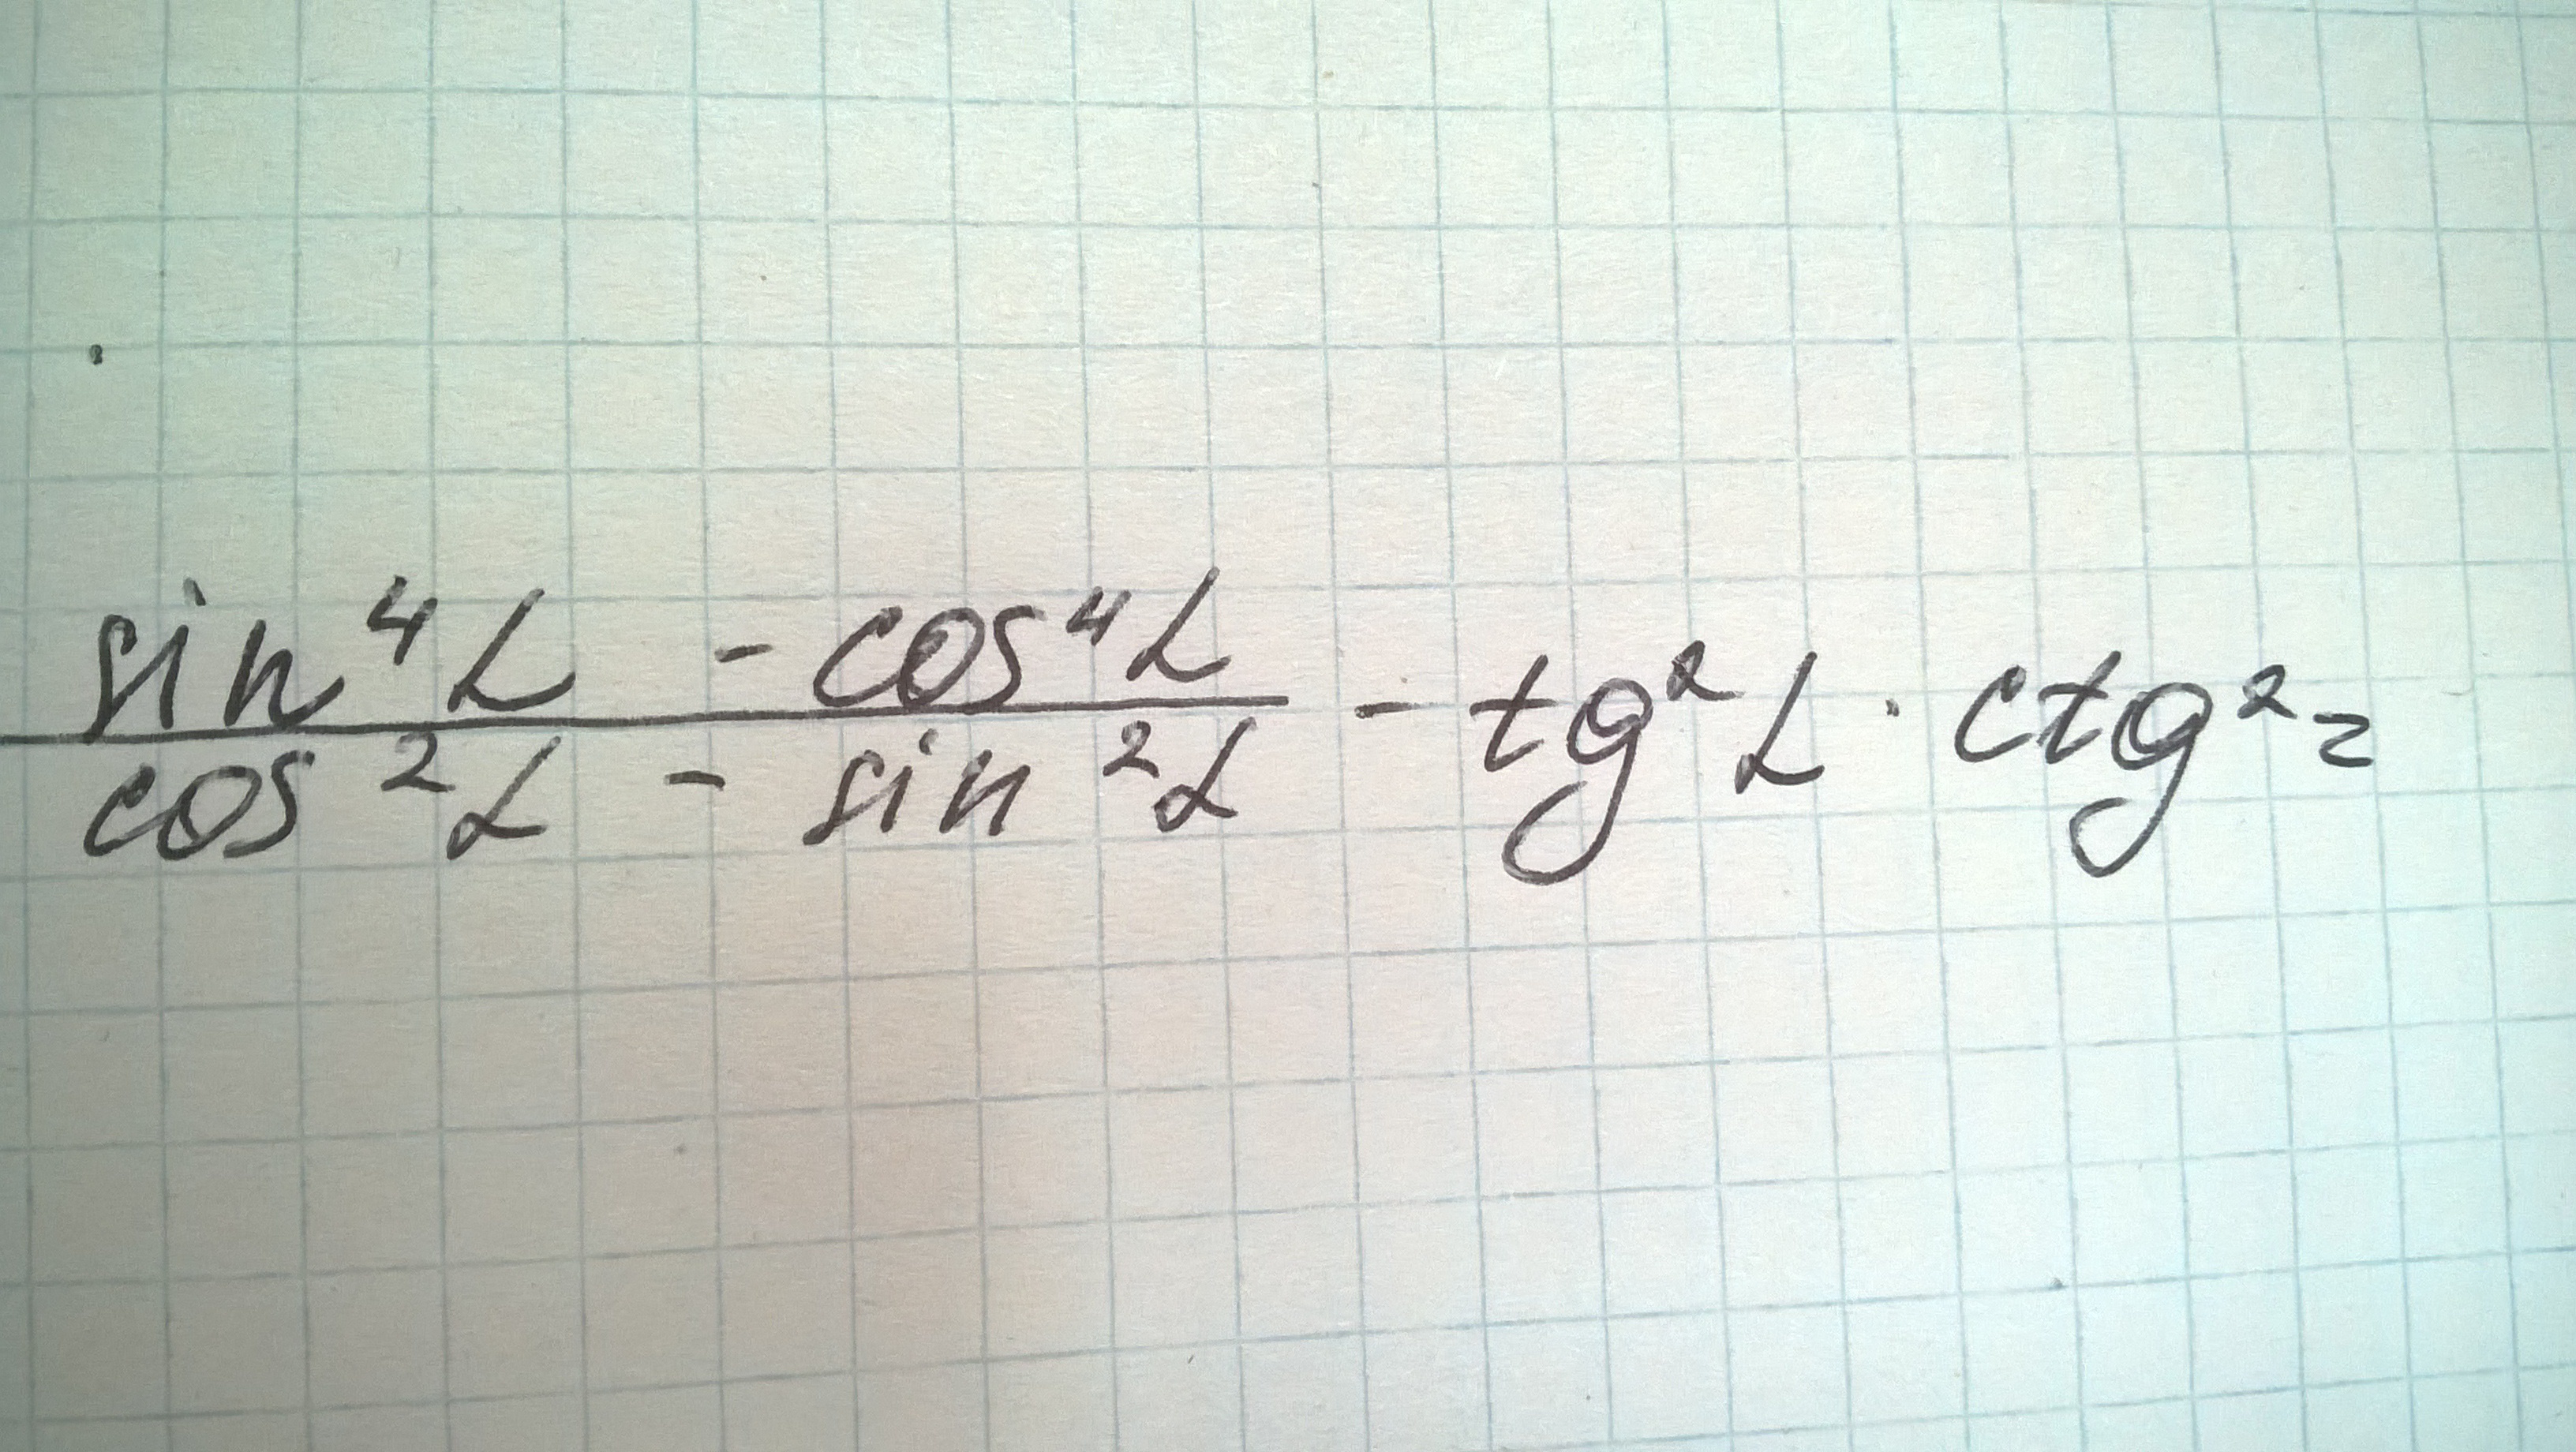 sin⁴α - cos⁴α
cos²α - sin²α - tg²α · ctg² =